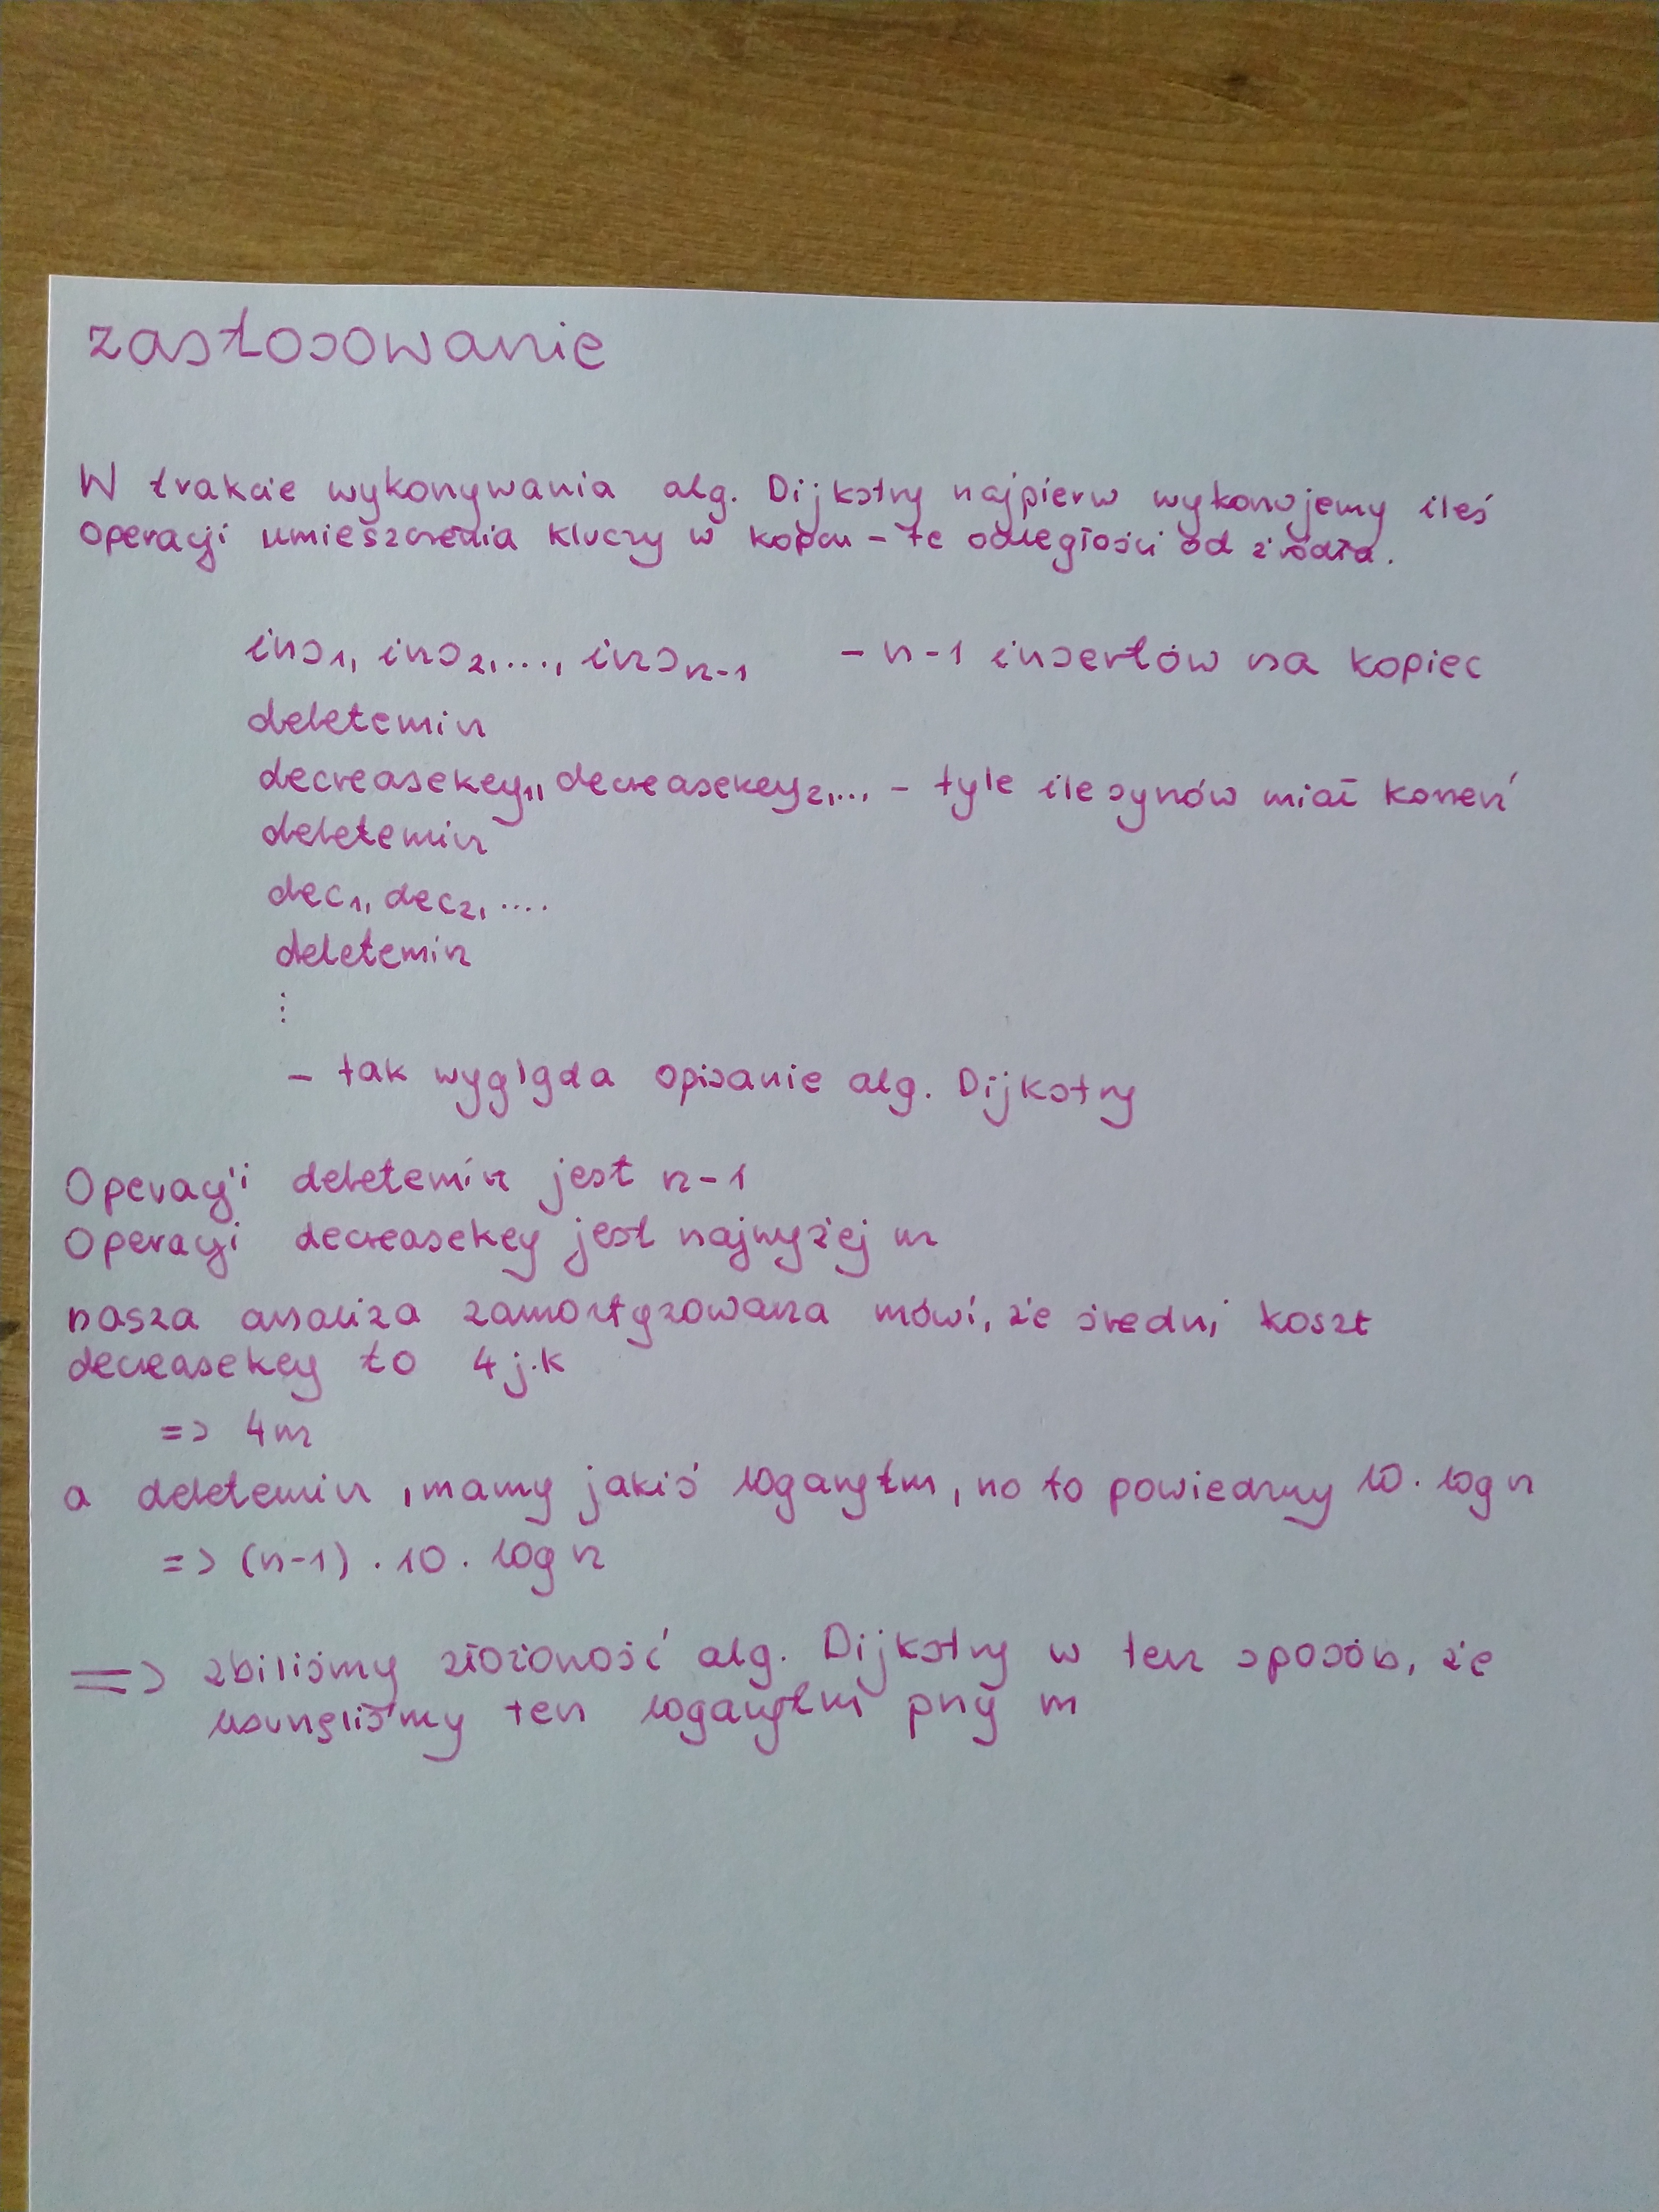 zastosowanie
W trakcie wykonywania alg. Dijkstry najpierw wykonujemy ileś
operacji umieszczenia kluczy w kopcu - te odległości od źródła.
ins₁, ins₂,..., insₙ₋₁ - n-1 insertów na kopiec
deletemin
decreasekey₁, decreasekey₂,... - tyle ile synów miał korzeń
deletemin
dec₁, dec₂, ....
deletemin
⋮
- tak wygląda opisanie alg. Dijkstry
Operacji deletemin jest n-1
Operacji decreasekey jest najwyżej m
nasza analiza zamortyzowana mówi, że średni koszt
decreasekey to 4 j.k
=> 4m
a deletemin, mamy jakiś logarytm, no to powiedzmy 10 · log n
=> (n-1) · 10 · log n
=> zbiliśmy złożoność alg. Dijkstry w ten sposób, że
usunęliśmy ten logarytm przy m